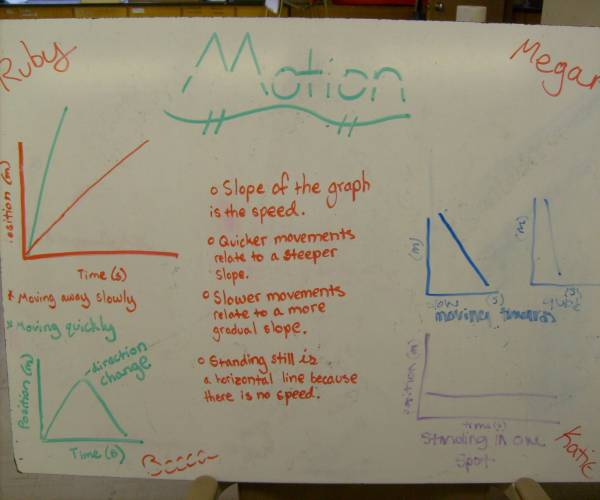 Ruby
Motion
Megan
Position (m)
Time (s)
* Moving away slowly
* Moving quickly
Position (m)
direction
change
Time (s)
o Slope of the graph
is the speed.
o Quicker movements
relate to a steeper
slope.
o Slower movements
relate to a more
gradual slope.
o Standing still is
a horizontal line because
there is no speed.
(m)
(s)
slow
(m)
(s)
quick
moving towards
Position (m)
time(s)
Standing in one
spot
Katie